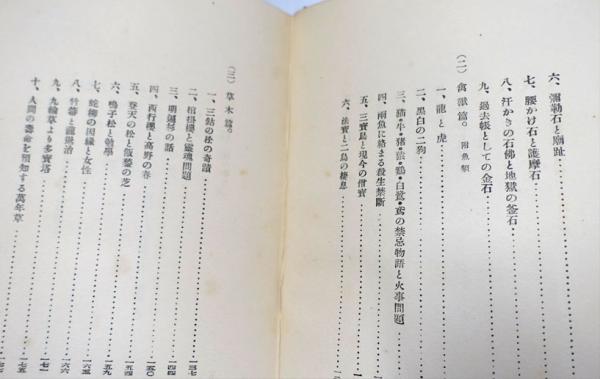 六、彌勒石と廟趾
七、腰かけ石と護摩石
八、汗かきの石佛と地獄の釜石
九、過去帳としての金石
(二) 禽獸篇。附魚類
一、龍と虎
二、黑白の二狗
三、猫・牛・猪・猿・鶴・白鷺・鳶の禁忌物語と火事問題
四、雨魚に絡まる殺生禁斷
五、三寶鳥と現今の僧寶
六、法寶と二鳥の棲息
(三) 草木篇。
一、三鈷の松の奇蹟 一三七
二、棺掛櫻と靈魂問題 一四二
三、明遍杉の話 一四四
四、西行櫻と高野の春 一五〇
五、登天の松と飯盛の芝 一五四
六、鳴子松と勃學 一五九
七、蛇柳の因緣と女性 一六三
八、竹箒と龍退治 一六六
九、九輪草より多寶塔 一七一
十、人間の壽命を預知する萬年草 一七五